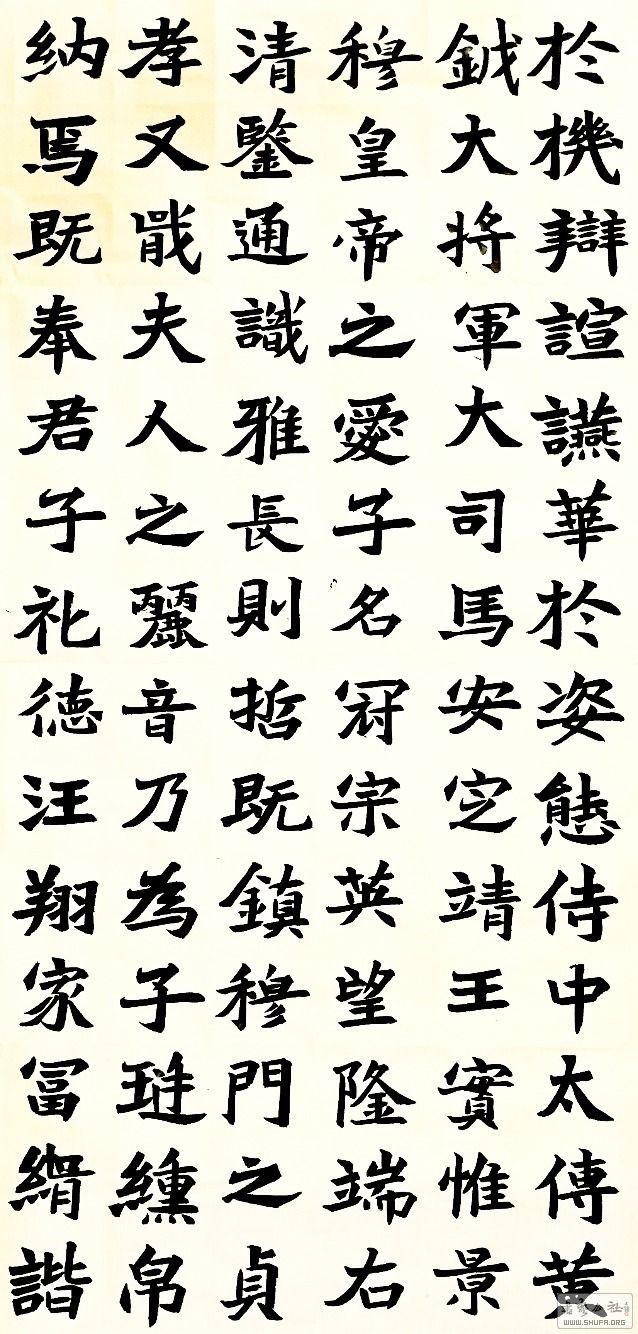 於機辯諠讌華於姿態侍中太傅黄
鉞大將軍大司馬安定靖王實惟景
穆皇帝之愛子名冠宗英望隆端右
清鑒通識雅長則哲既鎮穆門之貞
孝又戢夫人之麗音乃為子璡纁帛
納焉既奉君子礼德汪翔家冨緝諧
WWW.SHUFA.ORG